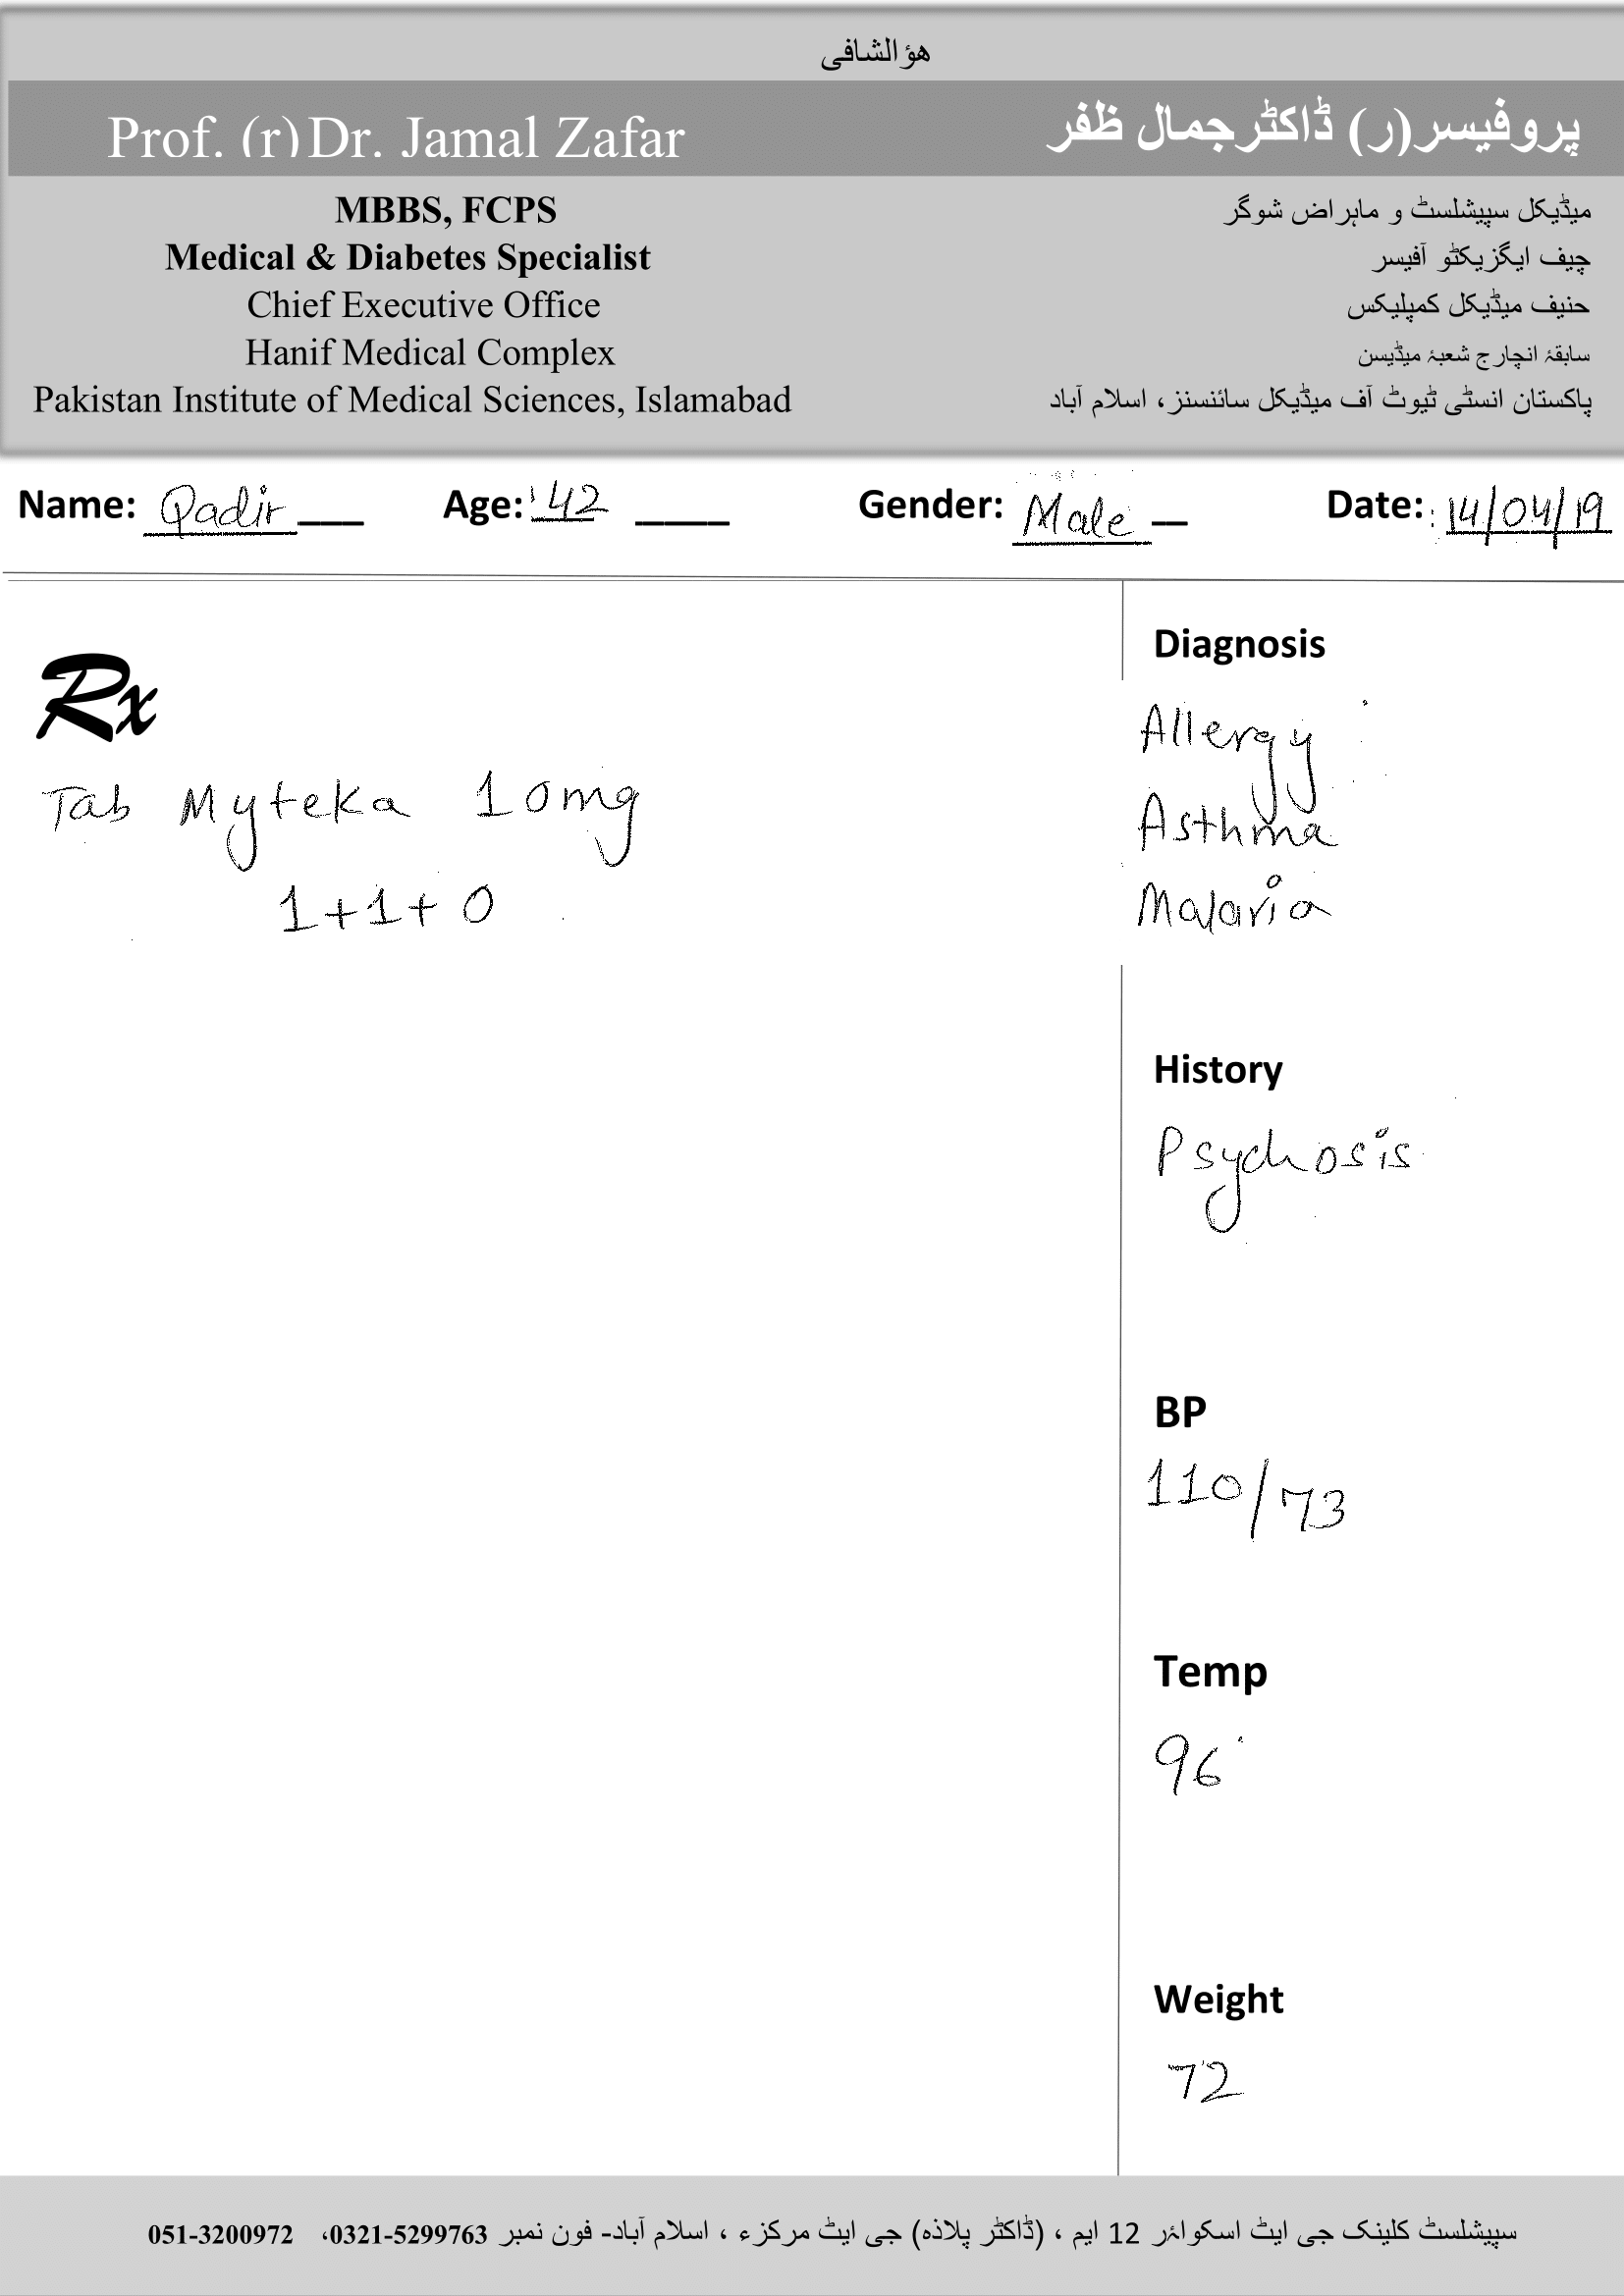 هؤالشافی
Prof. (r) Dr. Jamal Zafar
پروفیسر(ر) ڈاکٹرجمال ظفر
MBBS, FCPS
Medical & Diabetes Specialist
Chief Executive Office
Hanif Medical Complex
Pakistan Institute of Medical Sciences, Islamabad
میڈیکل سپیشلسٹ و ماہراض شوگر
چیف ایگزیکٹو آفیسر
حنیف میڈیکل کمپلیکس
سابقۂ انچارج شعبۂ میڈیسن
پاکستان انسٹی ٹیوٹ آف میڈیکل سائنسنز، اسلام آباد
Name: Qadir Age: 42 Gender: Male Date: 14/04/19
Rx
Tab Myteka 10mg
1+1+0
Diagnosis
Allergy
Asthma
Malaria
History
Psychosis
BP
110/73
Temp
96
Weight
72
سپیشلسٹ کلینک جی ایٹ اسکوائر 12 ایم ، (ڈاکٹر پلاذہ) جی ایٹ مرکزء ، اسلام آباد- فون نمبر 0321-5299763، 051-3200972